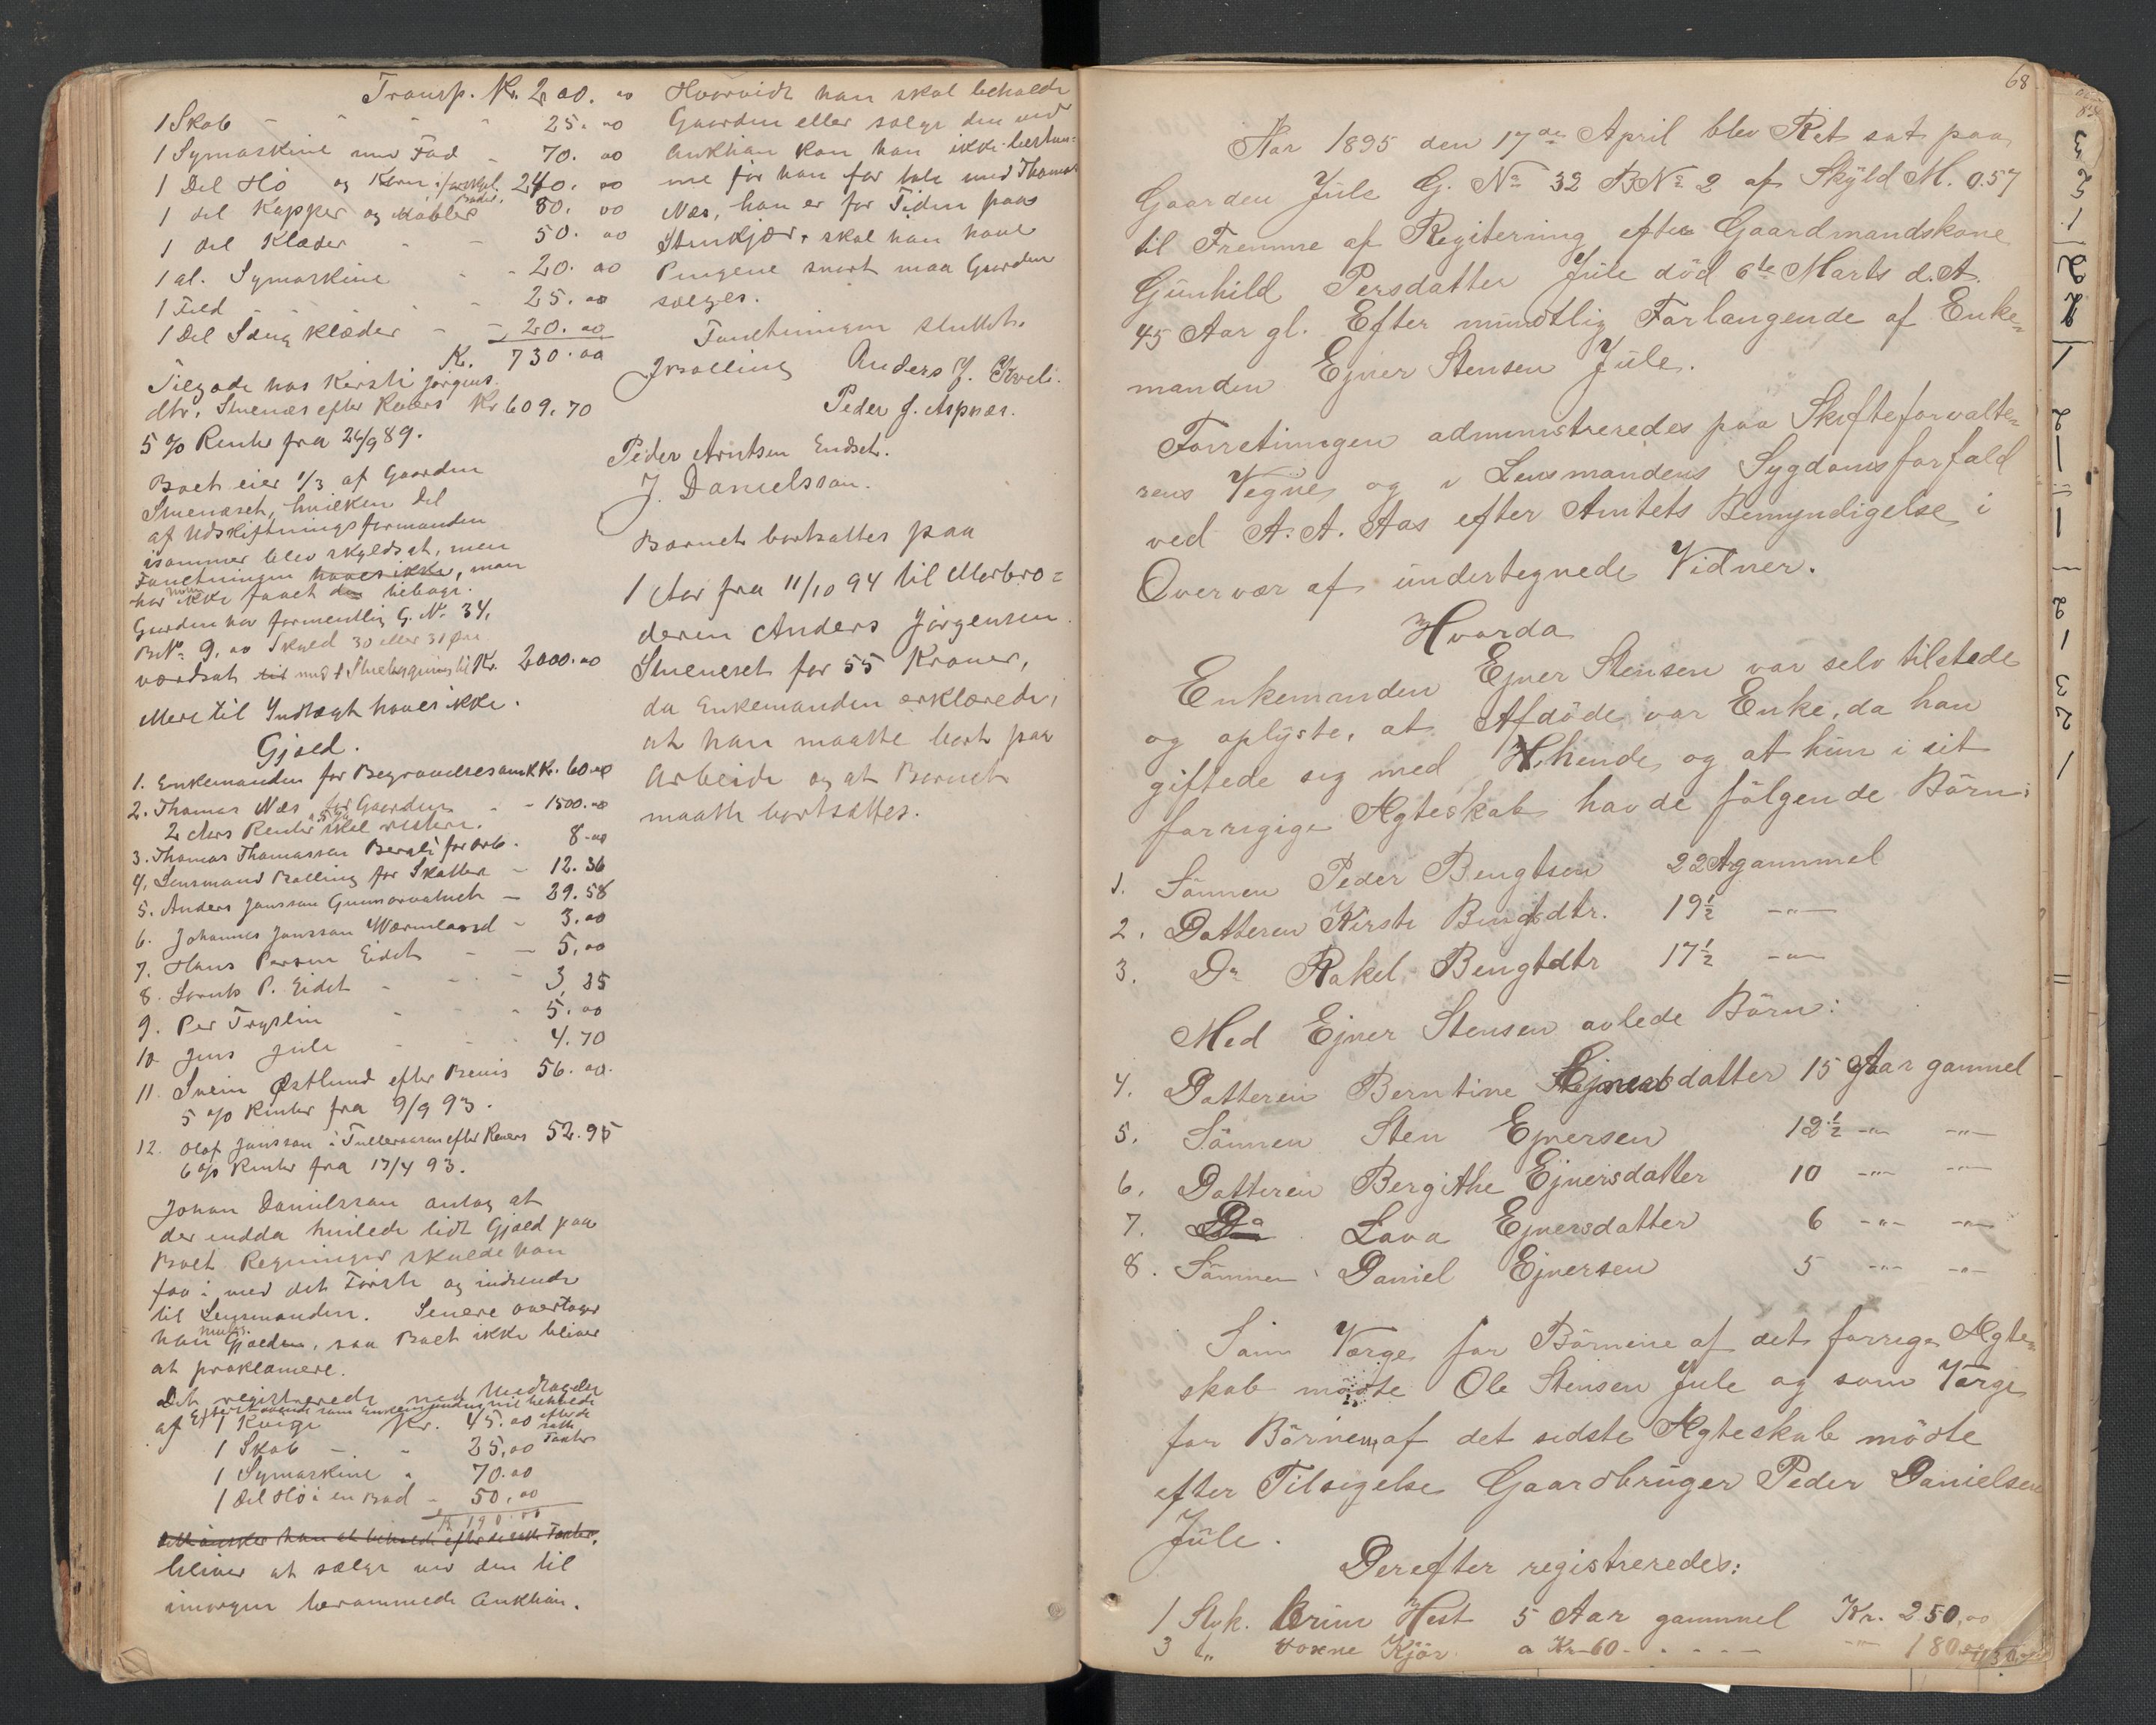 Transp. Kr. 200. 00
1 Skab - - - 25. 00
1 Symaskine med Fod - 70. 00
1 Del Hø og Korn 240. 00
1 del Kopper og Møbler 80. 00
1 del Klæder - - 50. 00
1 al. Symaskine - - 20. 00
1 Feld - - - 25. 00
1 Del Sæng klæder - - 20. 00
Kr. 730. 00
Tilgode hos Kirsti Jørgens-
dtr. Stuenæs efter Revers Kr 609. 70
5 % Renter fra 26/9 89.
Boet eier 1/3 af Gaarden
Stuenæset, hvilken Del
af Udskiftningsformanden
isommer blev skyldsat, men
Forretningen haves ikke, man
har ikke faaet den
Gaarden har formentlig G. No 34,
BNo 9. av Skyld 30 eller 31 Øre
værdsat til med 1 Stuebygning til Kr. 2000. 00
Mere til Indtægt haves ikke.
Gjæld.
1. Enkemanden for Begravelsesomk Kr. 60. 00
2. Thomas Næs for Gaarden - - 1500. 00
2 Aars Renter a 5 % skal restere.
3. Thomas Thomassen Bergli for Arb. 8. 00
4. Lensmand Balling for Skatter - 12. 36
5. Anders Jansson Gunnarvatnet - 29. 58
6. Johannes Jansson Wærmland - 3. 00
7. Hans Persen Eidet - - 5, 00
8. Lornts P. Eidet - - - 3, 35
9. Per Tryslin - - 5. 00
10 Jens Jule - - 4. 70
11. Svein Østlund efter Bevis 56. 00.
5 % Renter fra 9/9 93.
12. Olof Jansson i Tulleraasen efter Revers 52. 95
6 % Renter fra 17/4 93.
Johan Danielssan antog at
der endda hvilede lidt Gjæld paa
Boet. Regninger skulde han
faa i med det Første og indsende
til Lensmanden. Senere overtager
han Gjælden, saa Boet ikke bliver
at proklamere.
Det registrerede med Undtagelse
af Efterstaaende som Enkemanden vil beholde
1 Kvige Kr. 45. 00 efter de satte Takster
1 Skab - - 25, 00
1 Symaskine - 70. 00
1 del Hø i en Bod - 50, 00
Kr 190. 00
Dette ønsker han at beholde efter de satte Takster,
bliver at sælge ved den til
imorgen berammede Auktion.
Hvorvidt han skal beholde
Gaarden eller sælge den ved
Auktion kan han ikke bestem=
me før han far tale med Thomas
Næs, han er for Tiden paa
Stenkjær, skal han have
Pengene snart maa Gaarden
sælges.
Forretningen sluttet.
JBalling Anders J. Kveli.
Peder J. Aspnæs.
Peder Arntsen Endset.
J. Danielsson.
Barnet bortsattes paa
1 Aar fra 11/10 94 til Morbro=
deren Anders Jørgensen
Stueneset for 55 Kroner,
da Enkemanden erklærede,
at han maatte bort paa
Arbeide og at Barnet
maatte bortsættes.
68
Aar 1895 den 17de April blev Ret sat paa
Gaarden Jule G. No 32 BNo 2 af Skyld M. 0.57
til Fremme af Regitering efter Gaardmandskone
Gunhild Persdatter Jule død 6te Marts d. A.
45 Aar gl. Efter mundtlig Forlangende af Enke=
manden Ejner Stensen Jule.
Forretningen administreredes paa Skifteforvalte=
rens Vegne og i Lensmandens Sygdomsforfald
ved A. A. Aas efter Amtets Bemyndigelse i
Overvær af undertegnede Vidner.
Hvorda
Enkemanden Ejner Stensen var selv tilstede
og oplyste, at Afdøde var Enke, da han
giftede sig med Hhende, og at hun i sit
forrigige Ægteskab havde følgende Børn:
1. Sønnen Peder Bengtsen 22 Ar gammel
2. Datteren Kirsti Bengtdtr. 19½ -"-
3. Do Rakel Bengtdtr 17½ -"-
Med Ejner Stensen avlede Børn:
4. Datteren Berntine Ejnersdatter 15 Aar gammel
5. Sønnen Sten Ejnersen 12½ -"- -"-
6. Datteren Bergithe Ejnersdatter 10 -"- -"-
7. Do Lava Ejnersdatter 6 -"- -"-
8. Sønnen Daniel Ejnersen 5 -"- -"-
Som Værge for Børnene af det forrige Ægte=
skab mødte Ole Stensen Jule og som Værge
for Børnene af det sidste Ægteskab mødte
efter Tilsigelse Gaardbruger Peder Danielsen
Jule.
Derefter registreredes:
1 Styk. Brun Hest 5 Aar gammel Kr. 250,00
3 " voxne Kjør a Kr 60 - - - - -"- 180,00